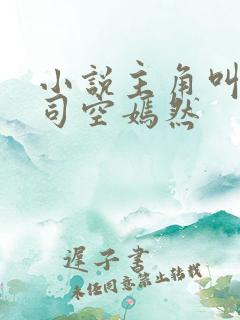 小说主角叫
司空嫣然
遲子书
未经同意禁止转载